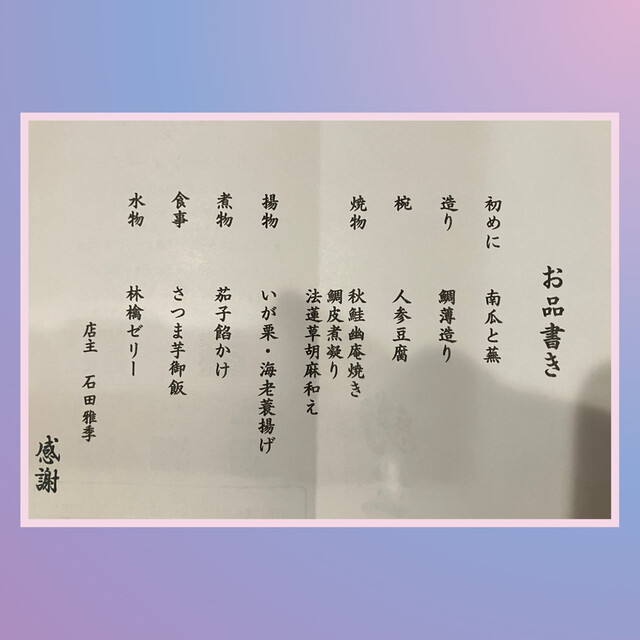 お品書き
初めに　南瓜と蕪
造り　鯛薄造り
椀　人参豆腐
焼物　秋鮭幽庵焼き
鯛皮煮凝り
法蓮草胡麻和え
揚物　いが栗・海老蓑揚げ
煮物　茄子餡かけ
食事　さつま芋御飯
水物　林檎ゼリー
店主　石田雅季
感謝